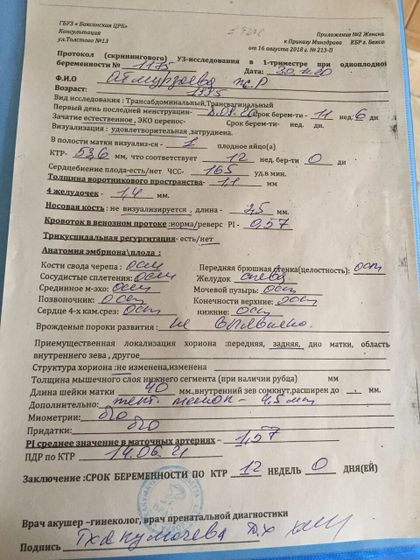 ГБУЗ « Баксанская ЦРБ»
Консультация
ул.Толстого №13
Приложение №2 Женска
к Приказу Минздрава КБР г. Бакса
от 16 августа 2018 г. № 213-П
Протокол (скринингового) УЗ-исследования в 1-триместре при одноплодной
беременности № 1175 Дата: 30.11.20
Ф.И.О
Возраст:
Вид исследования : Трансабдоминальный,Трансвагинальный
Первый день последней менструации- Срок берем-ти - 11 нед. 6 дн
Зачатие естественное , ЭКО перенос- Срок берем-ти- нед. дн.
Визуализация : удовлетворительная ,затруднена.
В полости матки визуализ-ся 1 плодное яйцо(а)
КТР- 53,6 мм, что соответствует 12 нед.бер-ти 0 дн
Сердцебиение плода-есть/нет ЧСС- 165 уд.в мин.
Толщина воротникового пространства- 1,1 мм
4 желудочек - 1,4 мм.
Носовая кость : не визуализируется , длина - 2,5 мм.
Кровоток в венозном протоке :норма/реверс PI - 0,57
Трикуспидальная регургитация- есть/нет
Анатомия эмбриона\плода :
Кости свода черепа : осм
Передняя брюшная стенка(целостность): осм
Сосудистые сплетения: осм
Желудок слева
Срединное м-эхо: осм
Мочевой пузырь: осм
Позвоночник: осм
Конечности верхние: осм
Сердце 4-х кам.срез: осм
нижние: осм
Врожденые пороки развития : не выявлено.
Приемущественная локализация хориона :передняя, задняя, дно матки, область
внутреннего зева , другое
Структура хориона :не изменена,изменена
Толщина мышечного слоя нижнего сегмента (при наличии рубца) мм
Длина шейки матки 40 мм.,внутренний зев сомкнут,расширен до . мм.
Дополнительно: желт. мешок - 4,5 мм
Миометрий: б/о
Придатки: б/о
PI среднее значение в маточных артериях - 1,57
ПДР по КТР 14.06.21
Заключение :СРОК БЕРЕМЕННОСТИ ПО КТР 12 НЕДЕЛЬ 0 ДНЯ(ЕЙ)
Врач акушер –гинеколог, врач пренатальной диагностики
Подпись